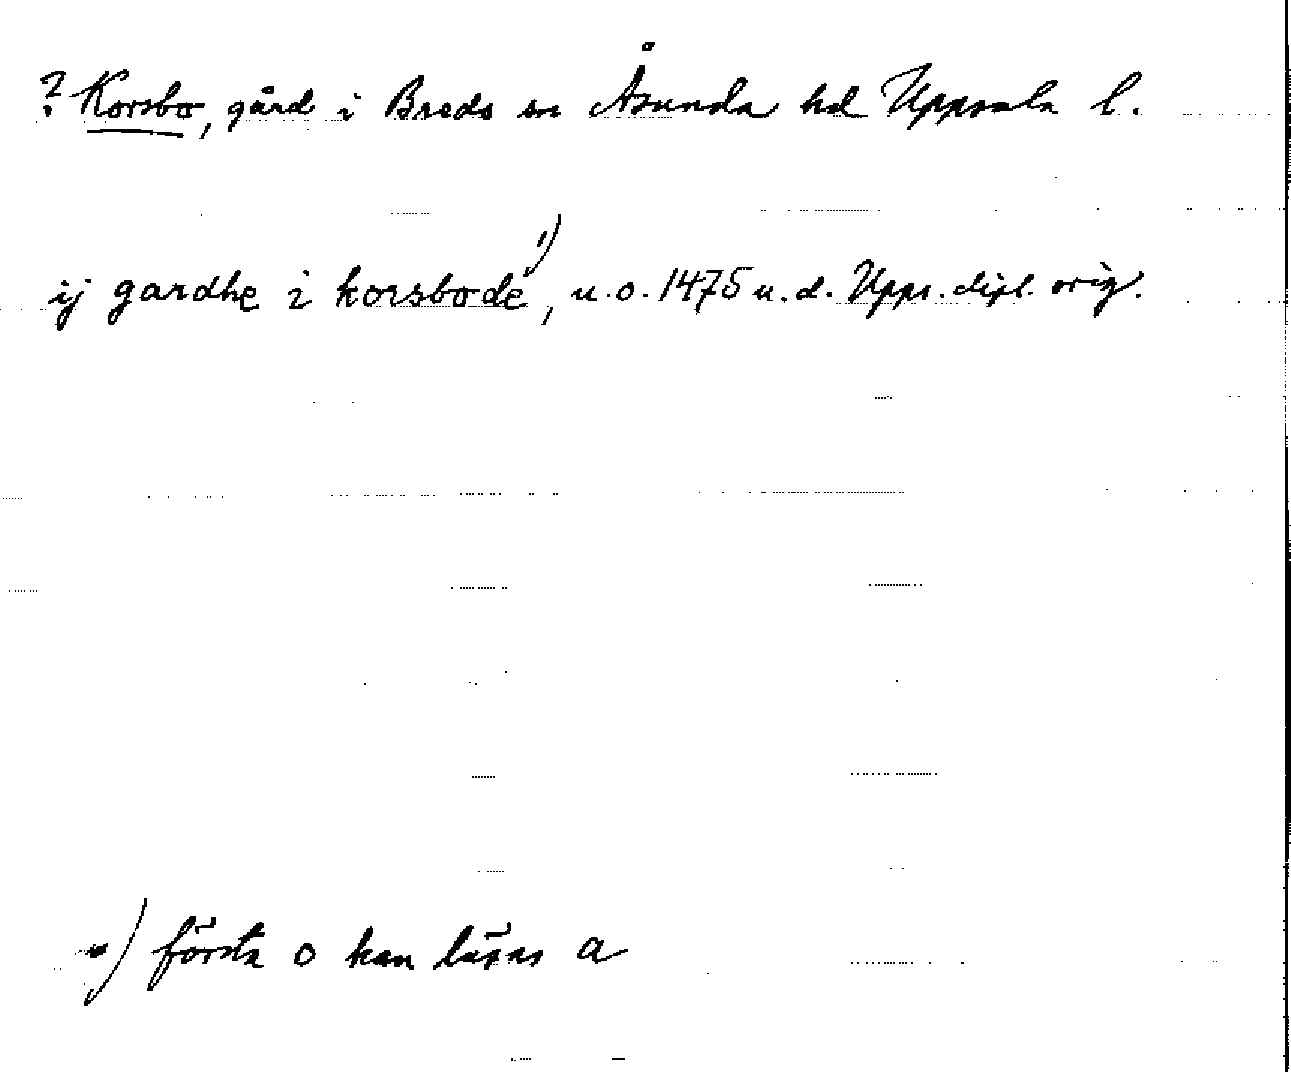 ? Korsbo, gård i Breds sn Åsunda hd Uppsala l.
ij gardhe i korsbode¹), u.o. 1475 u.d. Upps. dipl. orig.
¹) första o kan läsas a